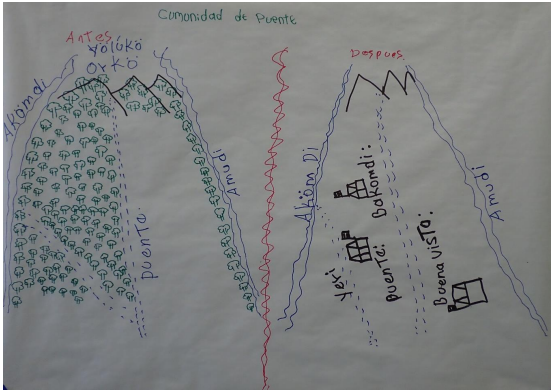 Comunidad de Puente
Antes
Yölúkö
Orkö
Akömdi
Puente:
Amudi
Despues
Akiöm Di
Yeri
Puente:
Bakomdi:
Buena visTa:
Amudi